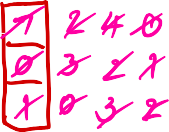 1 2 4 0
0 3 2 1
1 0 3 2